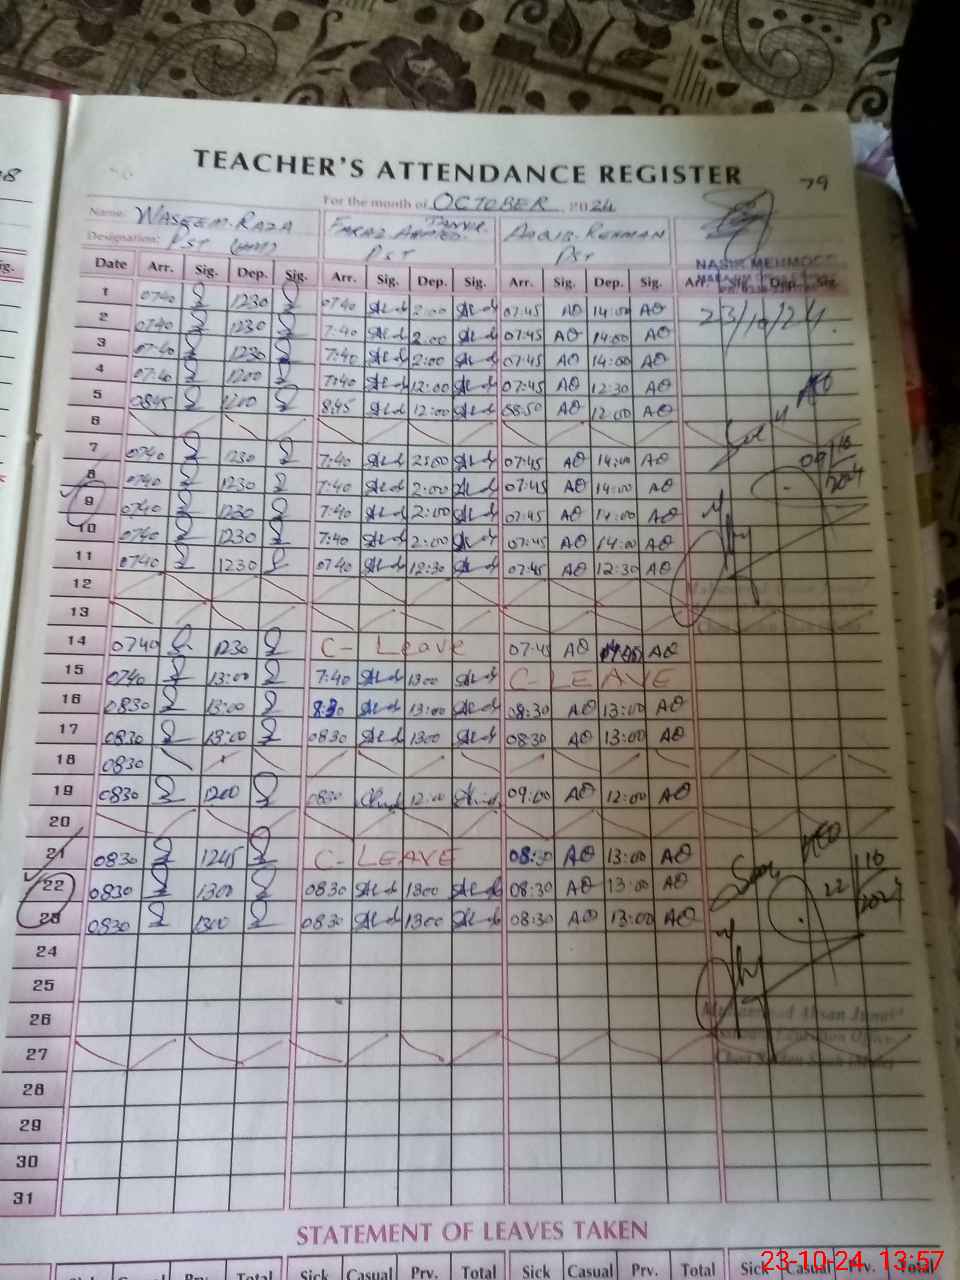 TEACHER'S ATTENDANCE REGISTER
79
For the month of OCTOBER 2024
Name: WASEEM RAZA FARAZ AHMED TANVIR AAQIB REHMAN
Designation: PST PST PST
NASIR MEHMOOD
Date Arr. Sig. Dep. Sig. Arr. Sig. Dep. Sig. Arr. Sig. Dep. Sig. Arr. Sig. Dep. Sig.
1 0740 1230 0740 2:00 07:45 AQ 14:00 AQ
23/10/24.
2 0740 1230 7:40 2:00 07:45 AQ 14:00 AQ
3 0740 1230 7:40 2:00 07:45 AQ 14:00 AQ
4 0740 1200 7:40 12:00 07:45 AQ 12:30 AQ
5 0845 1200 8:45 12:00 08:50 AQ 12:00 AQ
6
7 0740 1230 7:40 2:00 07:45 AQ 14:00 AQ
09/10/2024
8 0740 1230 7:40 2:00 07:45 AQ 14:00 AQ
9 0740 1230 7:40 2:00 07:45 AQ 14:00 AQ
10 0740 1230 7:40 2:00 07:45 AQ 14:00 AQ
11 0740 1230 0740 12:30 07:45 AQ 12:30 AQ
12
13
14 0740 1230 C- Leave 07:45 AQ AQ
15 0740 13:00 7:40 1300 C- LEAVE
16 0830 13:00 8:30 13:00 08:30 AQ 13:00 AQ
17 0830 13:00 0830 1300 08:30 AQ 13:00 AQ
18 0830
19 0830 1200 0830 12:00 09:00 AQ 12:00 AQ
20
21 0830 1245 C- LEAVE 08:30 AQ 13:00 AQ
22 0830 1300 0830 1300 08:30 AQ 13:00 AQ
22/10/2024
23 0830 1300 0830 1300 08:30 AQ 13:00 AQ
24
25
26
Muhammad Ahsan
27
28
29
30
31
STATEMENT OF LEAVES TAKEN
Sick Casual Prv. Total Sick Casual Prv. Total Sick Casual Prv. Total Sick Casual Prv. Total
23-10-24 13:57